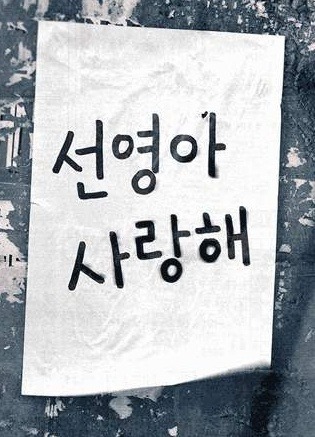 선영아
사랑해